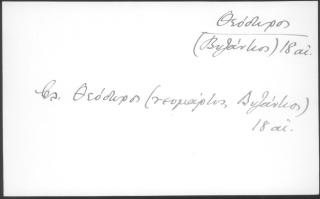 Θεόδωρος
(Βυζάντιος) 18 αἰ.
Ἁγ. Θεόδωρος (νεομάρτυς, Βυζάντιος)
18 αἰ.